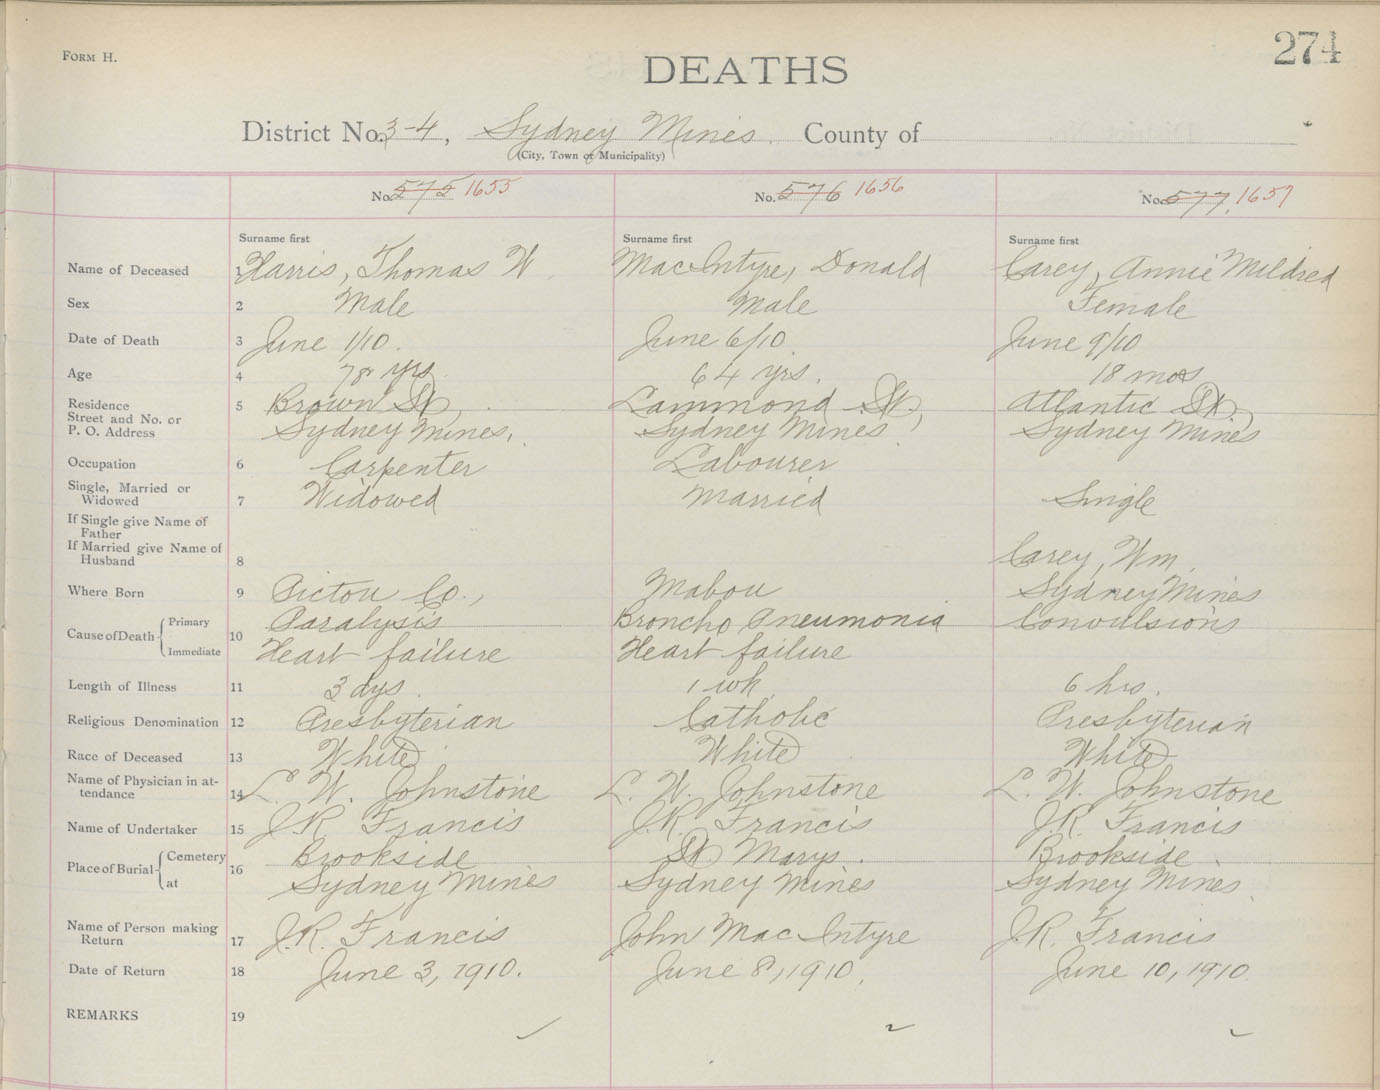 FORM H.
274
DEATHS
District No. 3-4, Sydney Mines. County of
(City, Town or Municipality)
No. 575 1655 No. 576 1656 No. 577. 1657
Surname first Surname first Surname first
Name of Deceased 1 Harris, Thomas W MacIntyre, Donald Carey, Annie Mildred
Sex 2 Male Male Female
Date of Death 3 June 1/10. June 6/10 June 9/10
Age 4 78 yrs. 64 yrs. 18 mos
Residence 5 Brown St, Lammond St, Atlantic St,
Street and No. or
P. O. Address Sydney Mines, Sydney Mines Sydney Mines
Occupation 6 Carpenter Labourer
Single, Married or
Widowed 7 Widowed Married Single
If Single give Name of
Father
If Married give Name of
Husband 8 Carey, Wm.
Where Born 9 Pictou Co., Mabou Sydney Mines
Cause of Death Primary 10 Paralysis Broncho Pneumonia Convulsions
Immediate Heart failure Heart failure
Length of Illness 11 3 dys. 1 wk 6 hrs.
Religious Denomination 12 Presbyterian Catholic Presbyterian
Race of Deceased 13 White White White
Name of Physician in at-
tendance 14 L. W. Johnstone L. W. Johnstone L. W. Johnstone
Name of Undertaker 15 J.R. Francis J.R. Francis J.R. Francis
Place of Burial Cemetery 16 Brookside St Marys. Brookside
at Sydney Mines Sydney Mines Sydney Mines.
Name of Person making
Return 17 J.R. Francis John MacIntyre J.R. Francis
Date of Return 18 June 3, 1910. June 8, 1910. June 10, 1910.
REMARKS 19